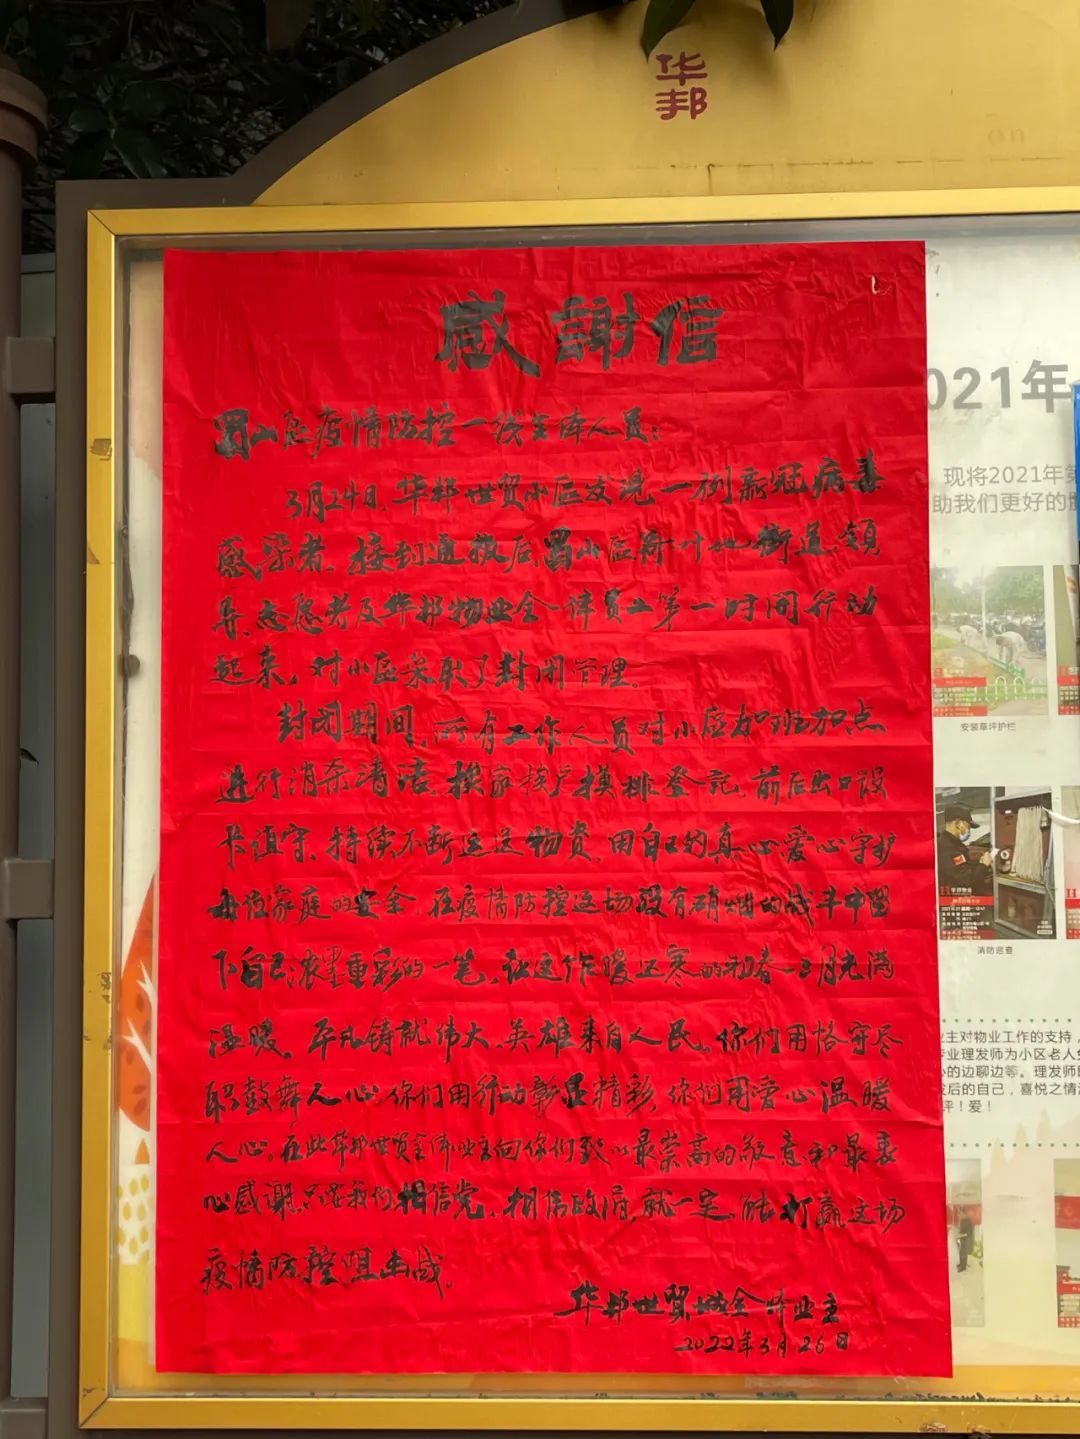 华
邦
感謝信
蜀山区疫情防控一线全体人员：
3月24日，华邦世贸小区发现一例新冠病毒
感染者，接到通报后，蜀山区荷叶地街道领
导、志愿者及华邦物业全体员工第一时间行动
起来，对小区采取了封闭管理。
封闭期间，所有工作人员对小区加班加点
进行消杀清洁，挨家挨户摸排登记，前后出口设
卡值守，持续不断运送物资，用自己的真心爱心守护
每位家庭的安全，在疫情防控这场没有硝烟的战斗中留
下自己浓墨重彩的一笔，让这乍暖还寒的初春三月充满
温暖。平凡铸就伟大，英雄来自人民。你们用恪守尽
职鼓舞人心，你们用行动彰显精彩，你们用爱心温暖
人心。在此华邦世贸全体业主向你们致以最崇高的敬意和最衷
心感谢，只要我们相信党，相信政府，就一定能打赢这场
疫情防控阻击战。
华邦世贸城全体业主
2022年3月26日
021年
现将2021年第
助我们更好的
安装草坪护栏
消防巡查
业主对物业工作的支持，
专业理发师为小区老人
的边聊边等。理发师
发后的自己，喜悦之情
评！爱！